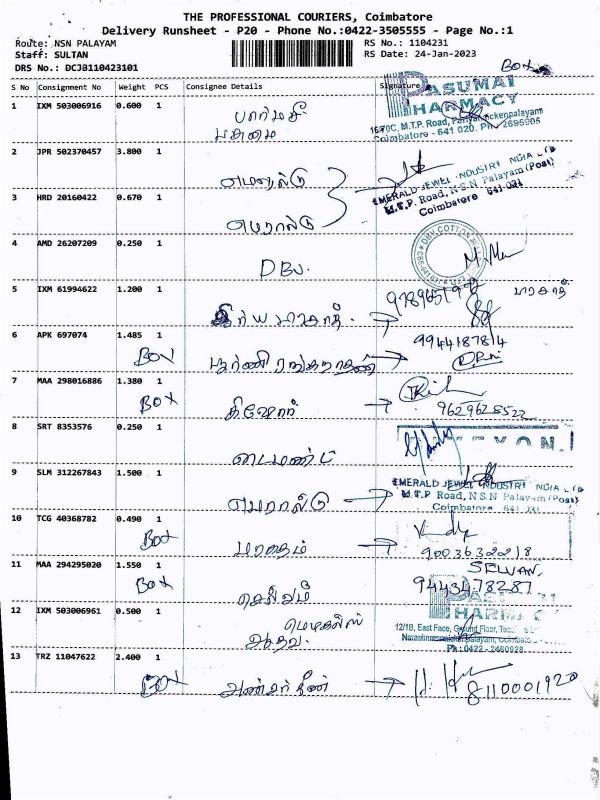 THE PROFESSIONAL COURIERS, Coimbatore
Delivery Runsheet - P20 - Phone No.:0422-3505555 - Page No.:1
Route: NSN PALAYAM RS No.: 1104231
Staff: SULTAN RS Date: 24-Jan-2023
DRS No.: DCJB110423101
BOX
S No Consignment No Weight PCS Consignee Details Signature
1 IXM 503006916 0.600 1 பார்மசி
பசுமை
PASUMAI
PHARMACY
M.T.P. Road,
Coimbatore - 641 020. Ph: 2695905
2 JPR 502370457 3.800 1 எமரால்டு
EMERALD JEWEL INDUSTRY INDIA LTD
M.T.P. Road, N.S.N. Palayam (Post)
Coimbatore 641 031
3 HRD 20160422 0.670 1 எமரால்டு
4 AMD 26207209 0.250 1 DBV.
5 IXM 61994622 1.200 1
6 APK 697074 1.485 1 9944187814
BOX
7 MAA 298016886 1.380 1 கிஷோர்
BOX 9629628522
8 SRT 8353576 0.250 1 டைமண்ட்
9 SLM 312267843 1.500 1 எமரால்டு
EMERALD JEWEL INDUSTRY INDIA LTD
M.T.P Road, N.S.N Palayam (Post)
Coimbatore 641 031
10 TCG 40368782 0.490 1 மரகதம்
BOX 9003632218
11 MAA 294295020 1.550 1 செல்வம் SELVAN.
BOX 9443478287
12 IXM 503006961 0.500 1 மெடிகல்ஸ்
PASUMAI
PHARMACY
12/1B, East Face, Ground Floor,
Ph: 0422 - 2460928
13 TRZ 11047622 2.400 1
BOX 8110001920